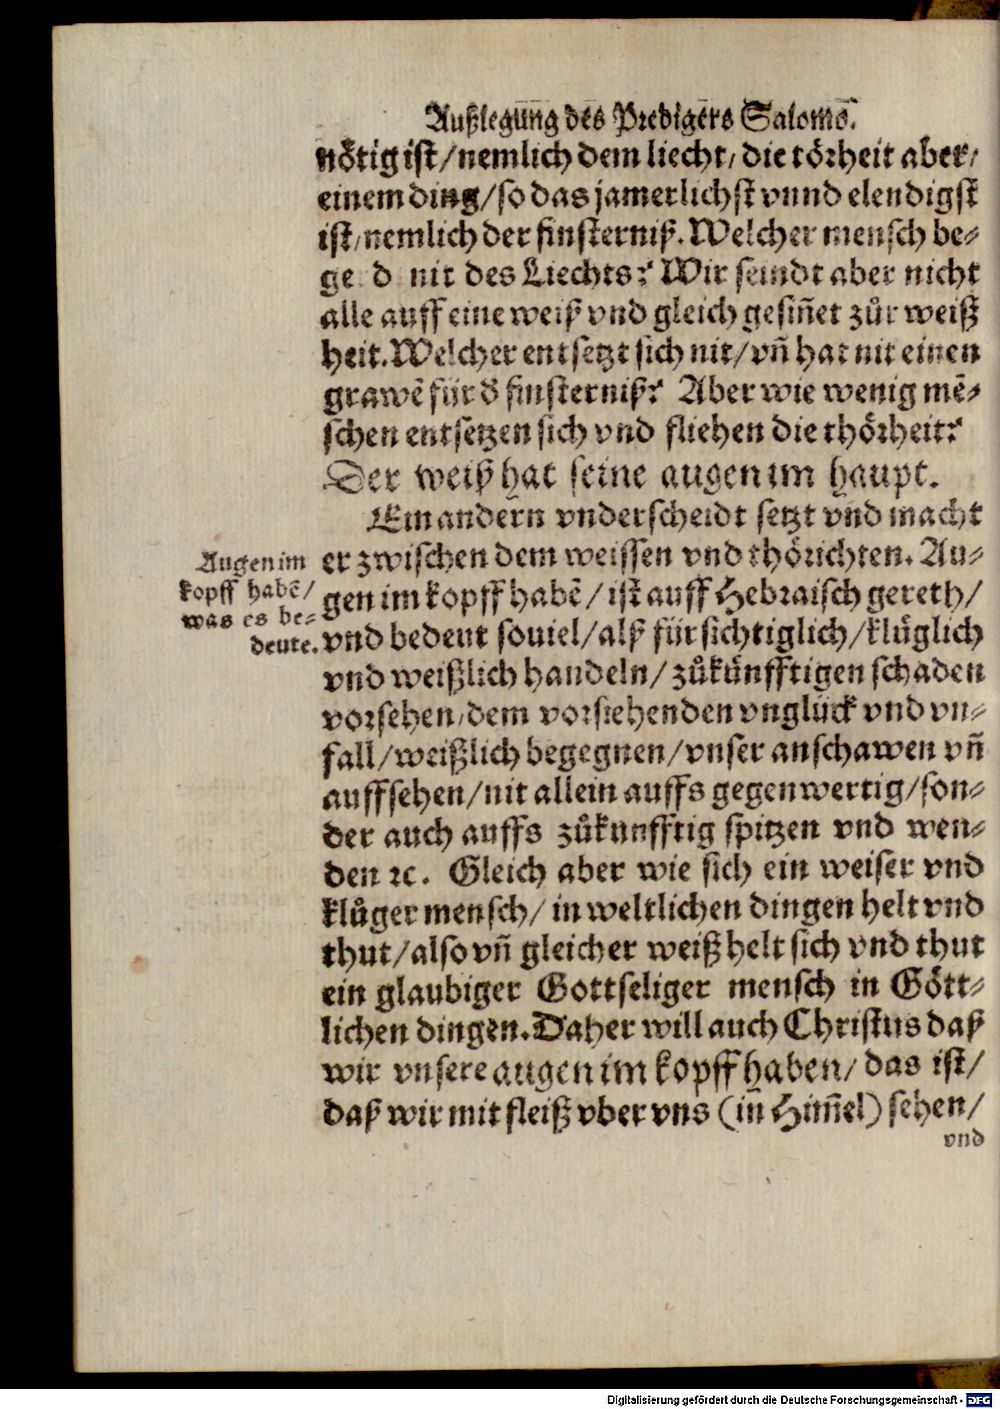 Außlegung des Predigers Salomō.
nötig ist/nemlich dem liecht/die törheit aber/
einem ding/so das jamerlichst vnnd elendigst
ist/nemlich der finsterniß. Welcher mensch be-
ge d nit des Liechts? Wir seindt aber nicht
alle auff eine weiß vnd gleich gesiñet zůr weiß
heit. Welcher entsetzt sich nit/vñ hat nit einen
grawē für d' finsterniß? Aber wie wenig mē-
schen entsetzen sich vnd fliehen die thörheit?
Der weiß hat seine augen im haupt.
Ein andern vnderscheidt setzt vnd macht
er zwischen dem weissen vnd thörichten. Au-
gen im kopff habē/ist auff Hebraisch gereth/
vnd bedeut souiel/alß fürsichtiglich/klüglich
vnd weißlich handeln/zůkünfftigen schaden
vorsehen/dem vorstehenden vnglück vnd vn-
fall/weißlich begegnen/vnser anschawen vñ
auffsehen/nit allein auffs gegenwertig/son-
der auch auffs zůkunfftig spitzen vnd wen-
den ꝛc. Gleich aber wie sich ein weiser vnd
klůger mensch/in weltlichen dingen helt vnd
thut/also vñ gleicher weiß helt sich vnd thut
ein glaubiger Gottseliger mensch in Gött-
lichen dingen. Daher will auch Christus daß
wir vnsere augen im kopff haben/das ist/
daß wir mit fleiß vber vns (in Him̄el) sehen/
vnd
Augen im
kopff habē/
was es be-
deute.
Digitalisierung gefördert durch die Deutsche Forschungsgemeinschaft - DFG